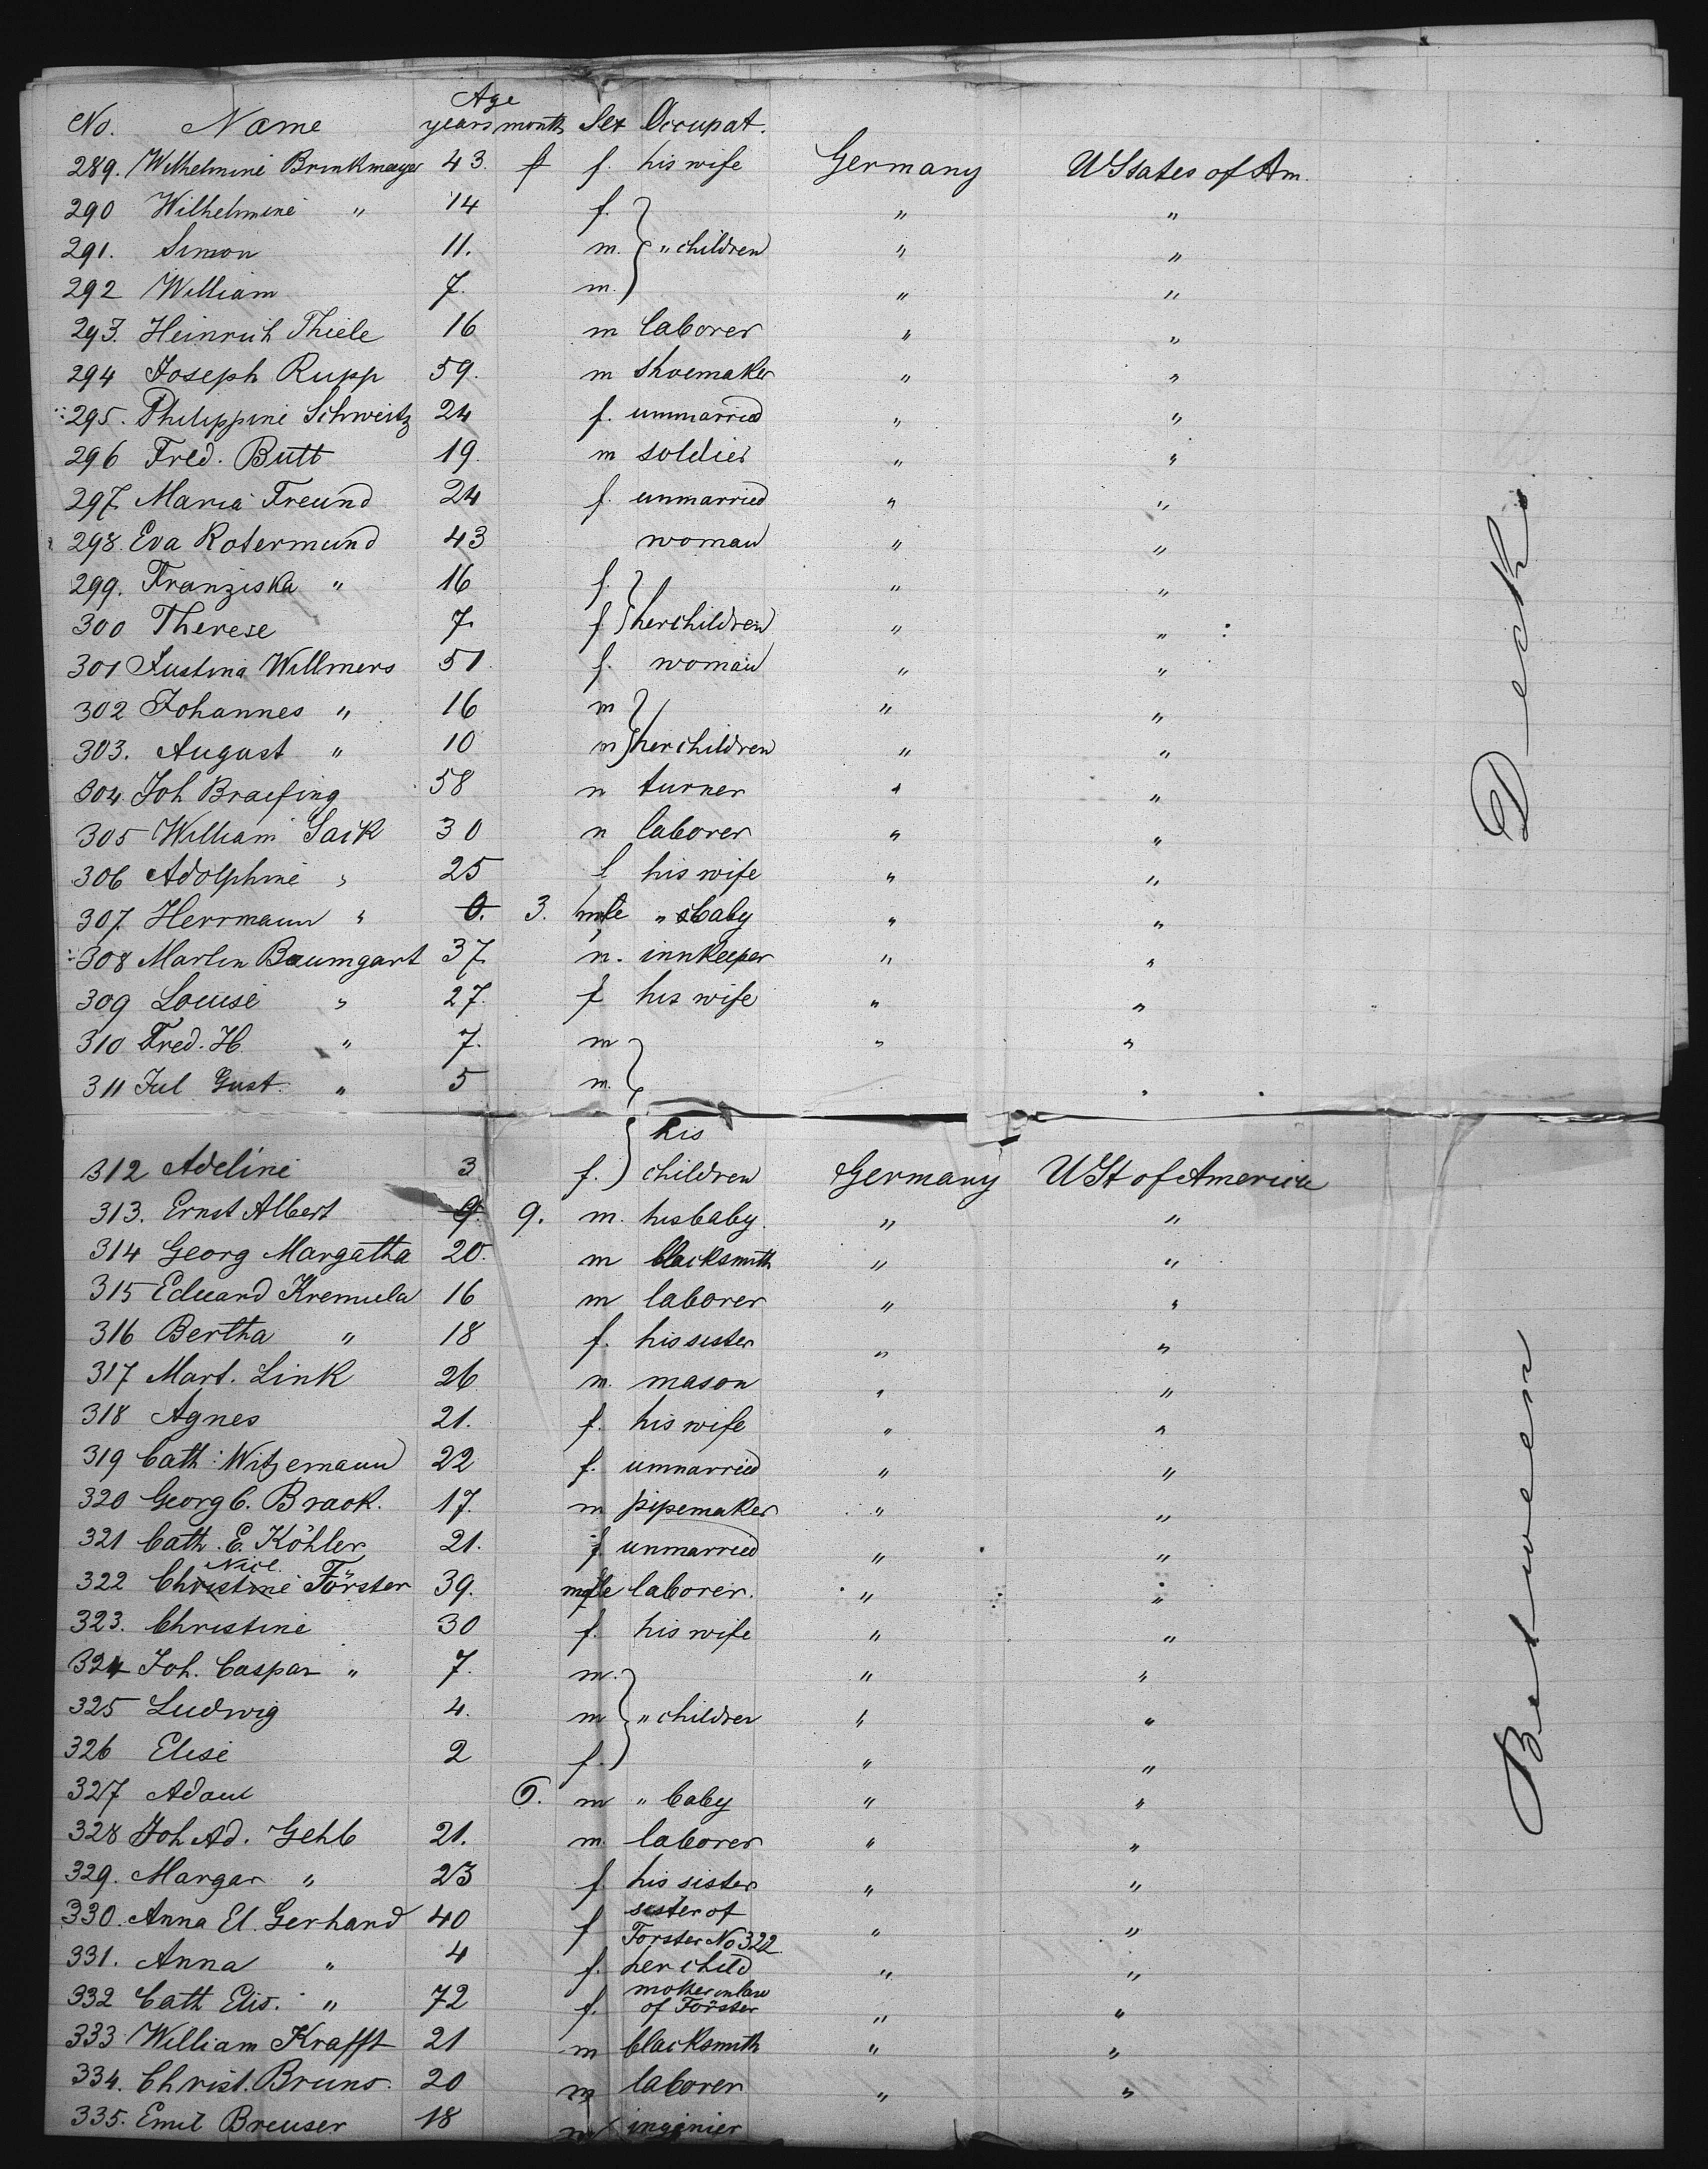 Age
No. Name years month Sex Occupat.
289. Wilhelmine Brinkmayer 43. f. his wife Germany UStates of Am.
290 Wilhelmine " 14 f. " "
291. Simon 11. m. " children " "
292 William 7. m. " "
293. Heinrich Thiele 16 m laborer " "
294 Joseph Rupp 59. m shoemaker " "
295. Philippine Schweitz 24 f. unmarried " "
296 Fred. Butt 19. m soldier " "
297. Maria Freund 24 f. unmarried " "
298. Eva Rotermund 43 woman " "
299. Franziska " 16 f. " "
300 Therese 7. f her children " "
301 Justina Willmers 51. f. woman " "
302 Johannes " 16 m " "
303. August " 10 m her children " "
304. Joh Braefing 58 m turner " "
305 William Saik 30 m laborer " "
306 Adolphine " 25 f his wife " "
307. Herrmann " 0. 3. " baby " "
308 Martin Baumgart 37. m. innkeeper " "
309 Louise " 27. f his wife " "
310 Fred. H. " 7. m " "
311 Jul Gust. " 5 m. "
his
312 Adeline 3 f. children Germany USt of America
313. Ernst Albert 9. 9. m. his baby. " "
314 Georg Margatha 20. m blacksmith " "
315 Eduard Kremula 16 m laborer " "
316 Bertha " 18 f. his sister " "
317 Mart. Link 26 m. mason " "
318 Agnes 21. f. his wife " "
319 Cath: Witzemann 22 f. unmarried " "
320 Georg C. Braok. 17. m pipemaker " "
321 Cath. E. Köhler 21. f unmarried " "
Nicl.
322 Christine Förster 39. male laborer. " "
323. Christine 30 f. his wife " "
324 Joh. Caspar " 7. m. " "
325 Ludwig 4. m " children " "
326 Elise 2 f. " "
327 Adam 6. m " baby " "
328 Joh Ad. Gehb 21. m. laborer " "
329. Margar " 23 f. his sister " "
sister of
330. Anna El. Gerhand 40 f Forster No 322. " "
331. Anna " 4 f. her child " "
mother in law
332 Cath Elis. " 72 f. of Förster " "
333 William Krafft 21 m blacksmith " "
334. Christ. Bruns. 20 m laborer " "
335. Emil Breuser 18 m inginier
Between Deck.